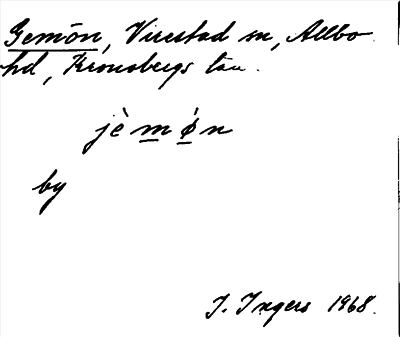 Gemön, Virestad sn, Allbo
hd, Kronobergs län.
jè m ǿ n
by
I. Ingers 1968.